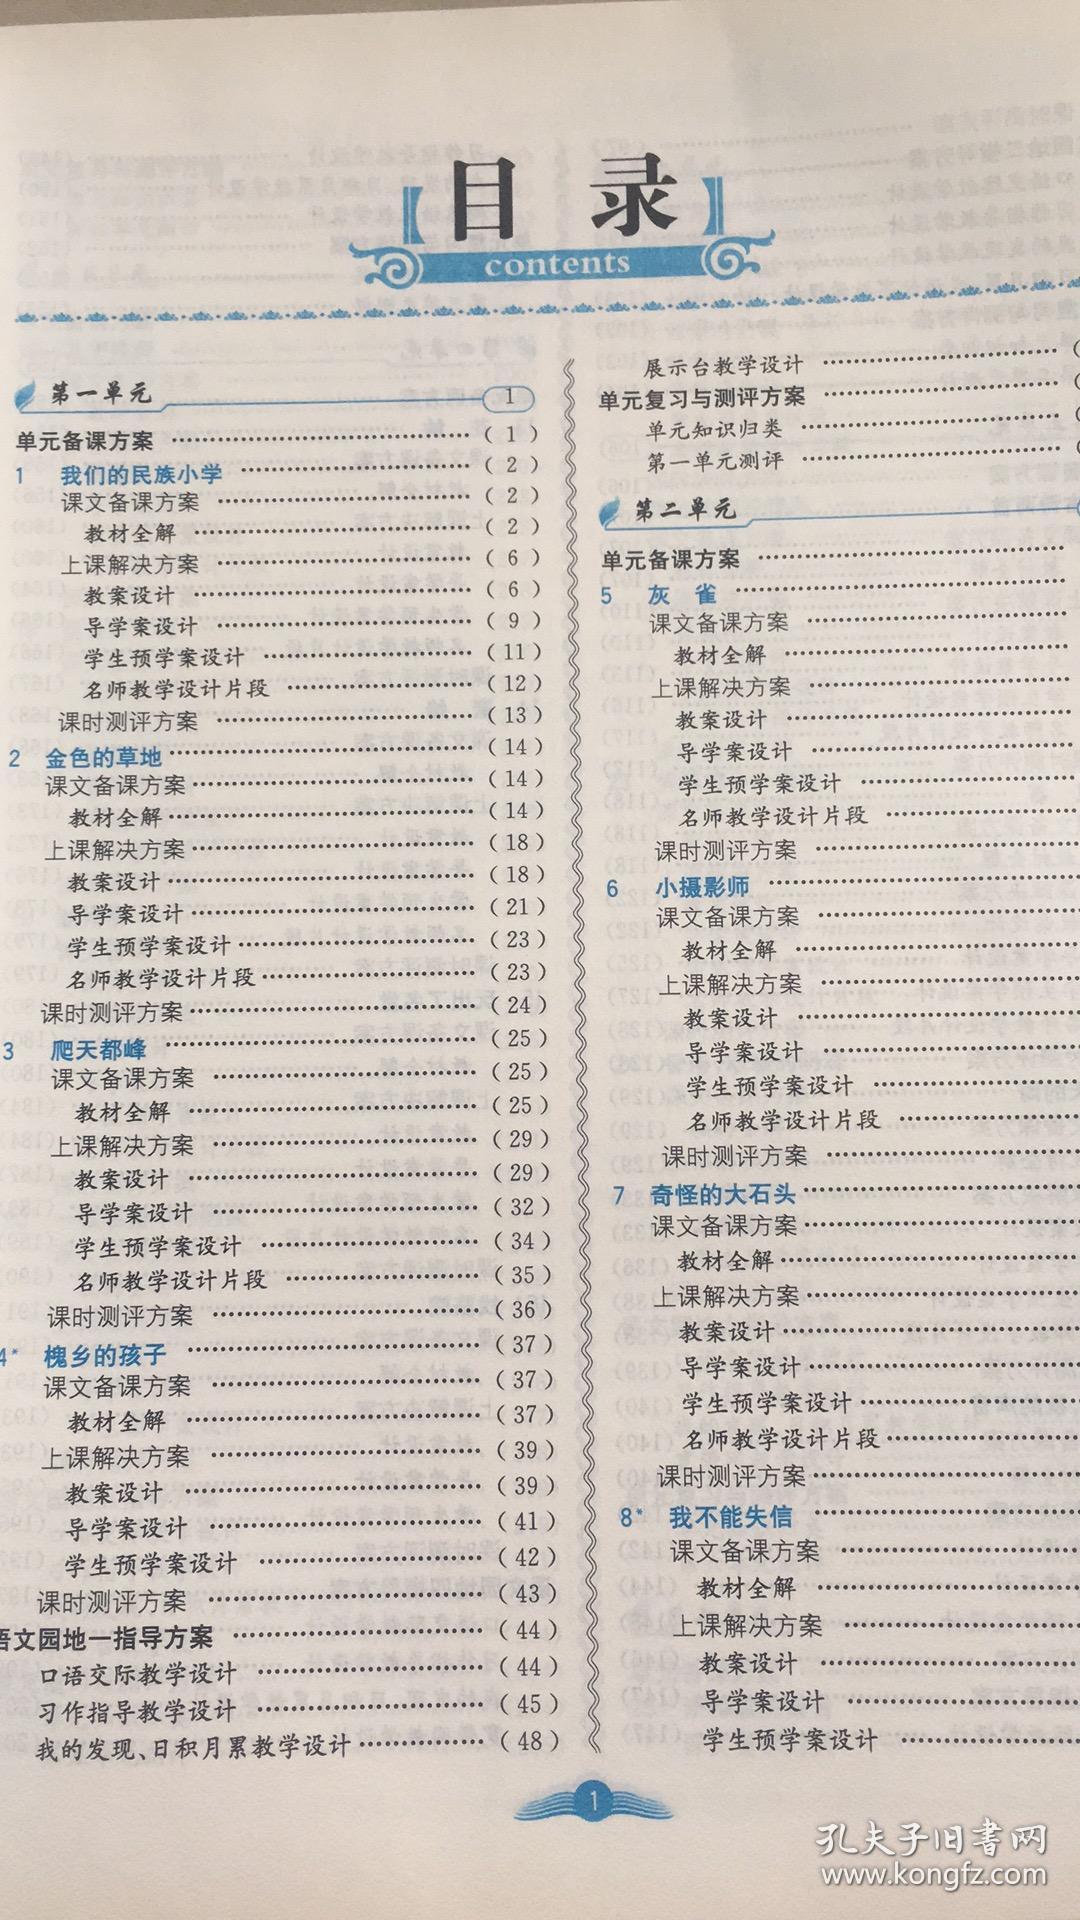 目录
contents
第一单元 1
单元备课方案 ……………… (1)
1 我们的民族小学 ……………… (2)
课文备课方案 ……………… (2)
教材全解 ……………… (2)
上课解决方案 ……………… (6)
教案设计 ……………… (6)
导学案设计 ……………… (9)
学生预学案设计 ……………… (11)
名师教学设计片段 ……………… (12)
课时测评方案 ……………… (13)
2 金色的草地 ……………… (14)
课文备课方案 ……………… (14)
教材全解 ……………… (14)
上课解决方案 ……………… (18)
教案设计 ……………… (18)
导学案设计 ……………… (21)
学生预学案设计 ……………… (23)
名师教学设计片段 ……………… (23)
课时测评方案 ……………… (24)
3 爬天都峰 ……………… (25)
课文备课方案 ……………… (25)
教材全解 ……………… (25)
上课解决方案 ……………… (29)
教案设计 ……………… (29)
导学案设计 ……………… (32)
学生预学案设计 ……………… (34)
名师教学设计片段 ……………… (35)
课时测评方案 ……………… (36)
4* 槐乡的孩子 ……………… (37)
课文备课方案 ……………… (37)
教材全解 ……………… (37)
上课解决方案 ……………… (39)
教案设计 ……………… (39)
导学案设计 ……………… (41)
学生预学案设计 ……………… (42)
课时测评方案 ……………… (43)
语文园地一指导方案 ……………… (44)
口语交际教学设计 ……………… (44)
习作指导教学设计 ……………… (45)
我的发现、日积月累教学设计 ……………… (48)
展示台教学设计 ………………
单元复习与测评方案 ………………
单元知识归类 ………………
第一单元测评 ………………
第二单元
单元备课方案 ………………
5 灰 雀 ………………
课文备课方案 ………………
教材全解 ………………
上课解决方案 ………………
教案设计 ………………
导学案设计 ………………
学生预学案设计 ………………
名师教学设计片段 ………………
课时测评方案 ………………
6 小摄影师 ………………
课文备课方案 ………………
教材全解 ………………
上课解决方案 ………………
教案设计 ………………
导学案设计 ………………
学生预学案设计 ………………
名师教学设计片段 ………………
课时测评方案 ………………
7 奇怪的大石头 ………………
课文备课方案 ………………
教材全解 ………………
上课解决方案 ………………
教案设计 ………………
导学案设计 ………………
学生预学案设计 ………………
名师教学设计片段 ………………
课时测评方案 ………………
8* 我不能失信 ………………
课文备课方案 ………………
教材全解 ………………
上课解决方案 ………………
教案设计 ………………
导学案设计 ………………
学生预学案设计 ………………
1
孔夫子旧书网
www.kongfz.com